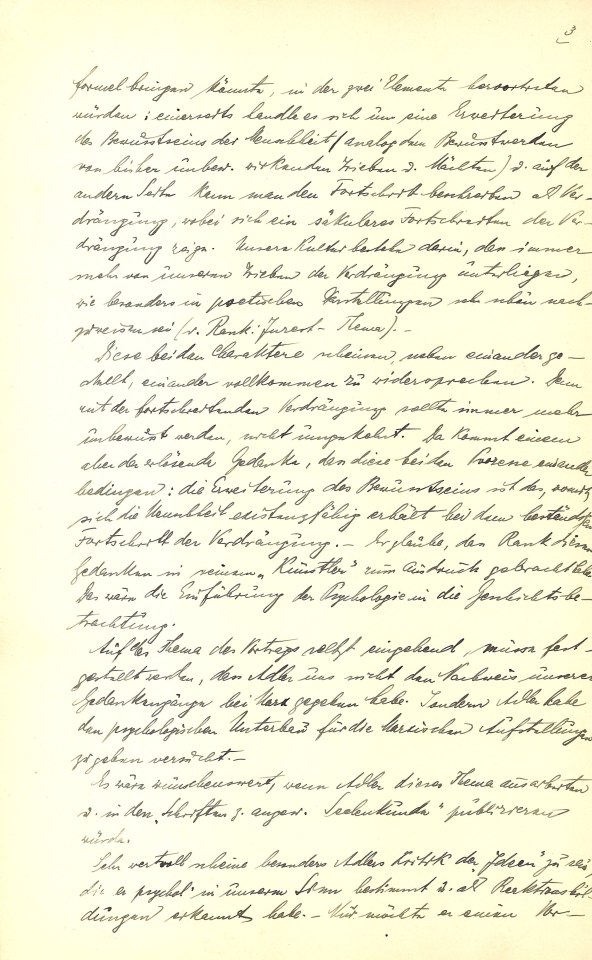 3
formel bringen könnte, in der zwei Elemente hervortreten
würden: einerseits handle es sich um eine Erweiterung
des Bewusstseins der Menschheit (analog dem Bewustwerden
von bisher unbew. wirkenden Trieben u. Mächten) u. auf der
andern Seite kann man den Fortschritt beschreiben als Ver-
drängung, wobei sich ein säkulares Fortschreiten der Ver-
drängung zeige. Unsere Kultur bestehe darin, dass immer
mehr von unseren Trieben der Verdrängung unterliegen,
wie besonders in poetischen Darstellungen sehr schön nach-
zuweisen sei (v. Rank: Inzest-Thema). -
Diese beiden Charaktere scheinen, neben einander ge-
stellt, einander vollkommen zu widersprechen. Denn
mit der fortschreitenden Verdrängung sollte immer mehr
unbewust werden, nicht umgekehrt. Da kommt einem
aber der erlösende Gedanke, dass diese beiden Prozesse einander
bedingen: die Erweiterung des Bewustseins ist das, womit
sich die Menschheit existenzfähig erhält bei dem beständigen
Fortschritt der Verdrängung. - Er glaube, dass Rank diesen
Gedanken in seinem „Künstler" zum Ausdruck gebracht habe.
Das wäre die Einführung der Psychologie in die Geschichtsbe-
trachtung.
Auf das Thema des Vortrags selbst eingehend, müsse fest-
gestellt werden, dass Adler uns nicht den Nachweis unserer
Gedankengänge bei Marx gegeben habe. Sondern Adler habe
den psychologischen Unterbau für die Marxschen Aufstellungen
zu geben versucht. -
Es wäre wünschenswert, wenn Adler dieses Thema ausarbeiten
u. in den „Schriften z. angew. Seelenkunde" publizieren
würde.
Sehr wertvoll scheine besonders Adlers Kritik der „Ideen" zu sein,
die er psychol. in unserem Sinn bestimmt u. als Reaktionsbil-
dungen erkannt habe. - Nur möchte er einen Vor-